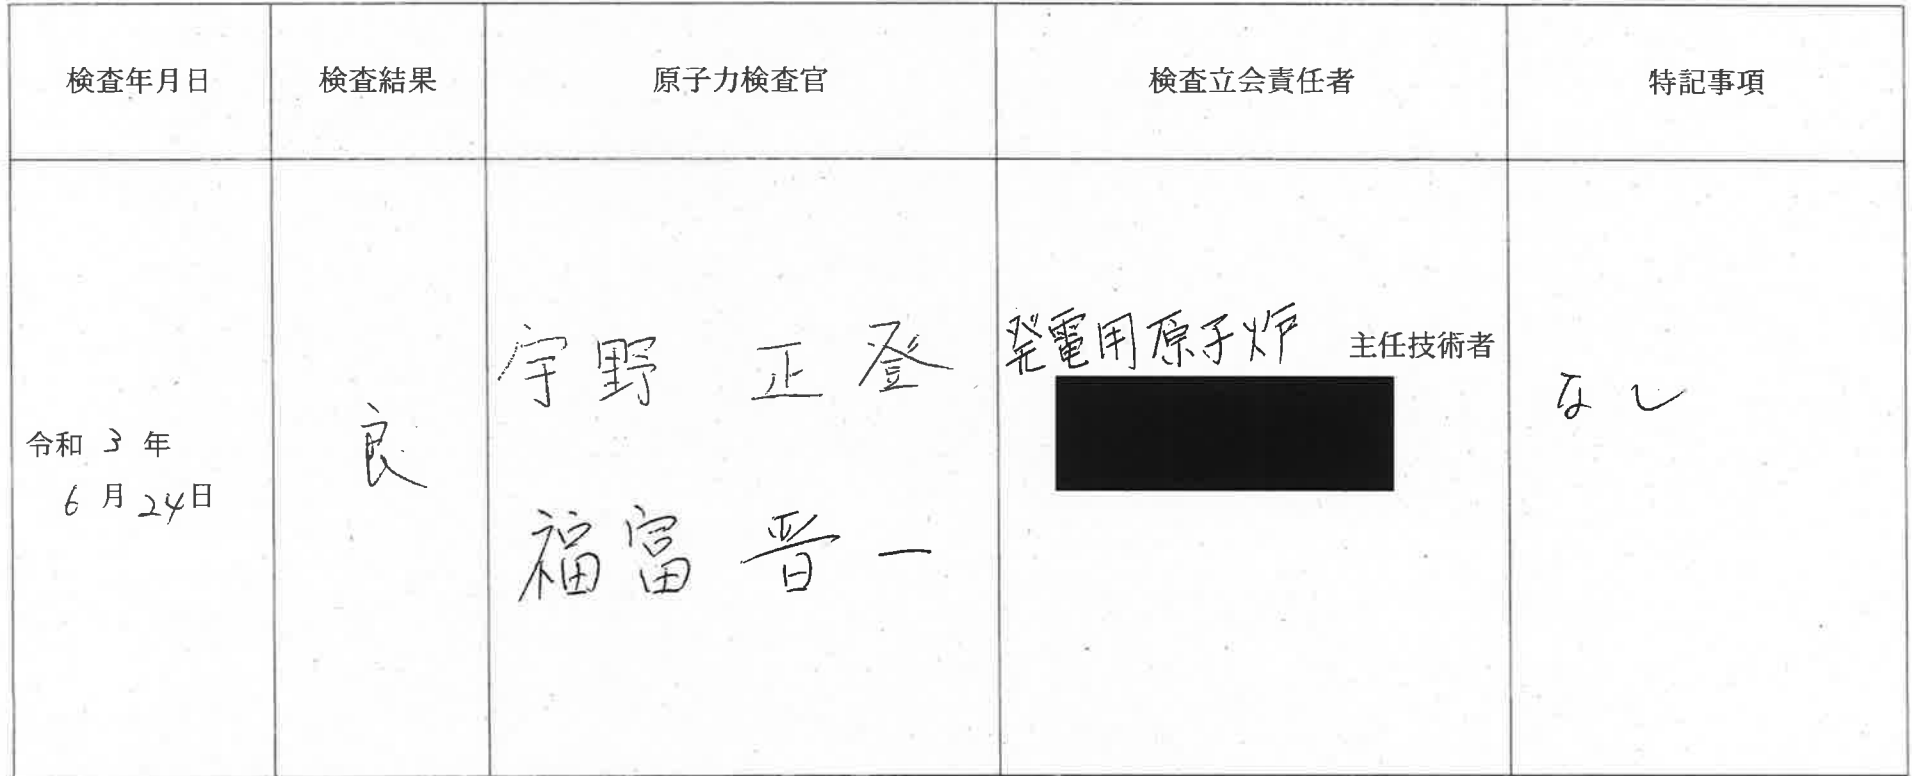 検査年月日 検査結果 原子力検査官 検査立会責任者 特記事項
令和 3 年
6 月 24日
良
宇野 正登
福富 晋一
発電用原子炉 主任技術者
なし